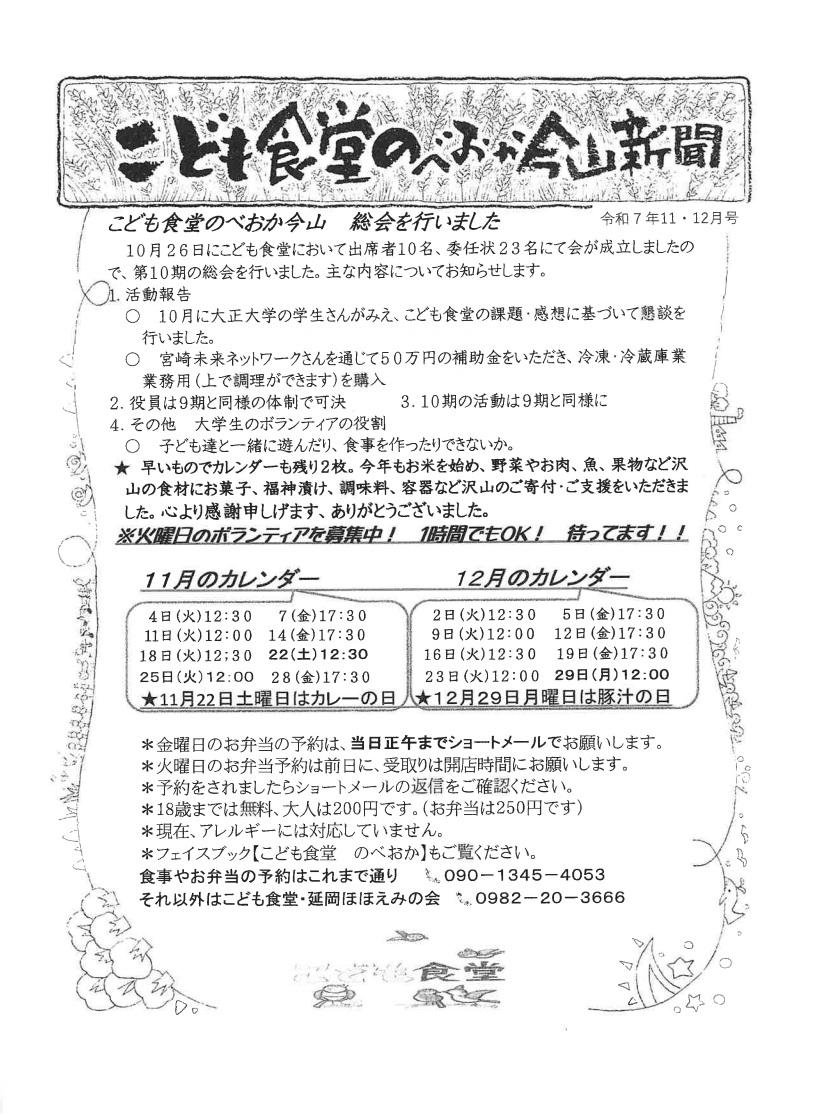 こども食堂のべおか今山新聞
こども食堂のべおか今山　総会を行いました　令和7年11・12月号
10月26日にこども食堂において出席者10名、委任状23名にて会が成立しましたの
で、第10期の総会を行いました。主な内容についてお知らせします。
1. 活動報告
○　10月に大正大学の学生さんがみえ、こども食堂の課題・感想に基づいて懇談を
行いました。
○　宮崎未来ネットワークさんを通じて50万円の補助金をいただき、冷凍・冷蔵庫業
業務用(上で調理ができます)を購入
2. 役員は9期と同様の体制で可決　3. 10期の活動は9期と同様に
4. その他　大学生のボランティアの役割
○　子ども達と一緒に遊んだり、食事を作ったりできないか。
★ 早いものでカレンダーも残り2枚。今年もお米を始め、野菜やお肉、魚、果物など沢
山の食材にお菓子、福神漬け、調味料、容器など沢山のご寄付・ご支援をいただきま
した。心より感謝申しげます、ありがとうございました。
※火曜日のボランティアを募集中！　1時間でもOK！　待ってます！！
11月のカレンダー　12月のカレンダー
4日(火)12:30　7(金)17:30　2日(火)12:30　5日(金)17:30
11日(火)12:00　14(金)17:30　9日(火)12:00　12日(金)17:30
18日(火)12;30　22(土)12:30　16日(火)12:30　19日(金)17:30
25日(火)12:00　28(金)17:30　23日(火)12:00　29日(月)12:00
★11月22日土曜日はカレーの日　★12月29日月曜日は豚汁の日
＊金曜日のお弁当の予約は、当日正午までショートメールでお願いします。
＊火曜日のお弁当予約は前日に、受取りは開店時間にお願いします。
＊予約をされましたらショートメールの返信をご確認ください。
＊18歳までは無料、大人は200円です。(お弁当は250円です)
＊現在、アレルギーには対応していません。
＊フェイスブック【こども食堂　のべおか】もご覧ください。
食事やお弁当の予約はこれまで通り　090－1345－4053
それ以外はこども食堂・延岡ほほえみの会　0982－20－3666
食堂